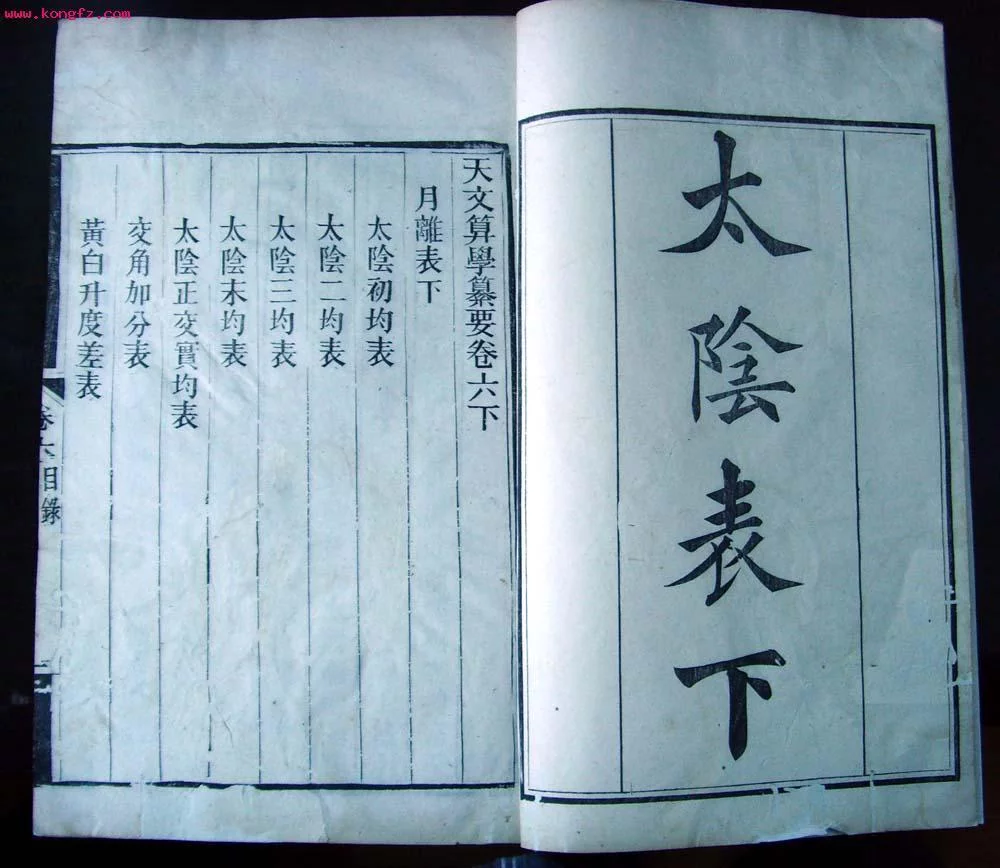 www.kongfz.com
太陰表下
天文算學纂要卷六下
月離表下
太陰初均表
太陰二均表
太陰三均表
太陰末均表
太陰正交實均表
交角加分表
黃白升度差表
卷六目錄